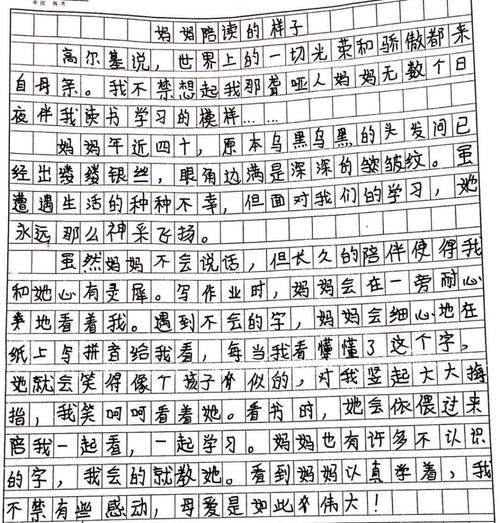 妈妈陪读的样子
高尔基说，世界上的一切光荣和骄傲都来
自母亲。我不禁想起我那聋哑人妈妈无数个日
夜伴我读书学习的模样……
妈妈年近四十，原本乌黑乌黑的头发间已
经出缕缕银丝，眼角边满是深深的皱皱纹。虽
遭遇生活的种种不幸，但面对我们的学习，她
永远那么神采飞扬。
虽然妈妈不会说话，但长久的陪伴使得我
和她心有灵犀。写作业时，妈妈会在一旁耐心
地看着我。遇到不会的字，妈妈会细心地在
纸上写拼音给我看，每当我看懂懂了这个字，
她就会笑得像个孩子似的，对我竖起大大拇
指，我笑呵呵看着她。看书时，她会依偎过来
陪我一起看，一起学习。妈妈也有许多不认识
的字，我会的就教她。看到妈妈认真学着，我
不禁有些感动，母爱是如此伟大！